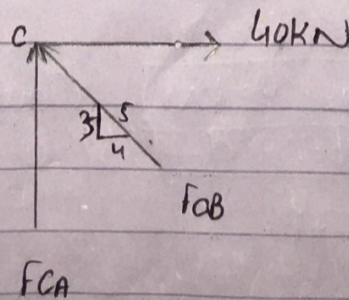 C 40KN
3 5
4
FCB
FCA